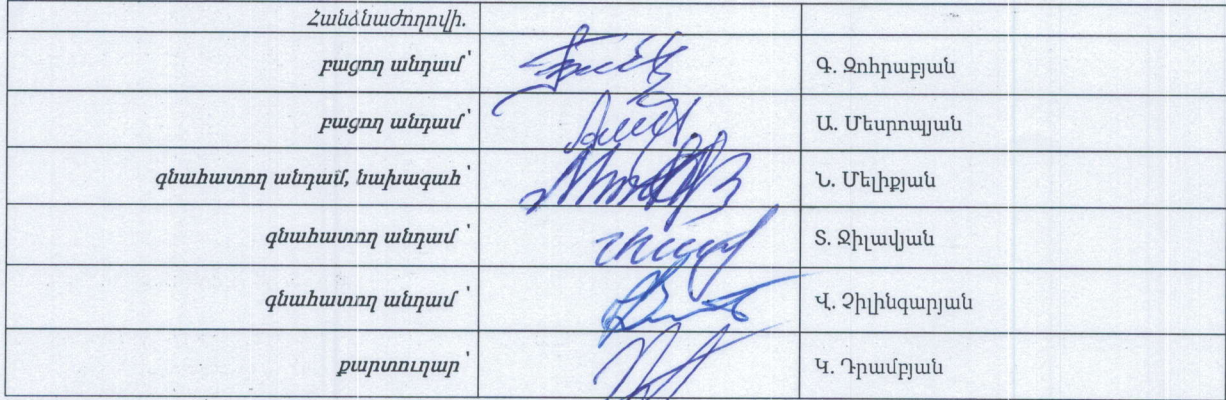 Հանձնաժողովի.
բացող անդամ՝ Գ. Զոհրաբյան
բացող անդամ՝ Ա. Մեսրոպյան
գնահատող անդամ, նախագահ՝ Ն. Մելիքյան
գնահատող անդամ՝ Տ. Ջիլավյան
գնահատող անդամ՝ Վ. Չիլինգարյան
քարտուղար՝ Կ. Դրամբյան